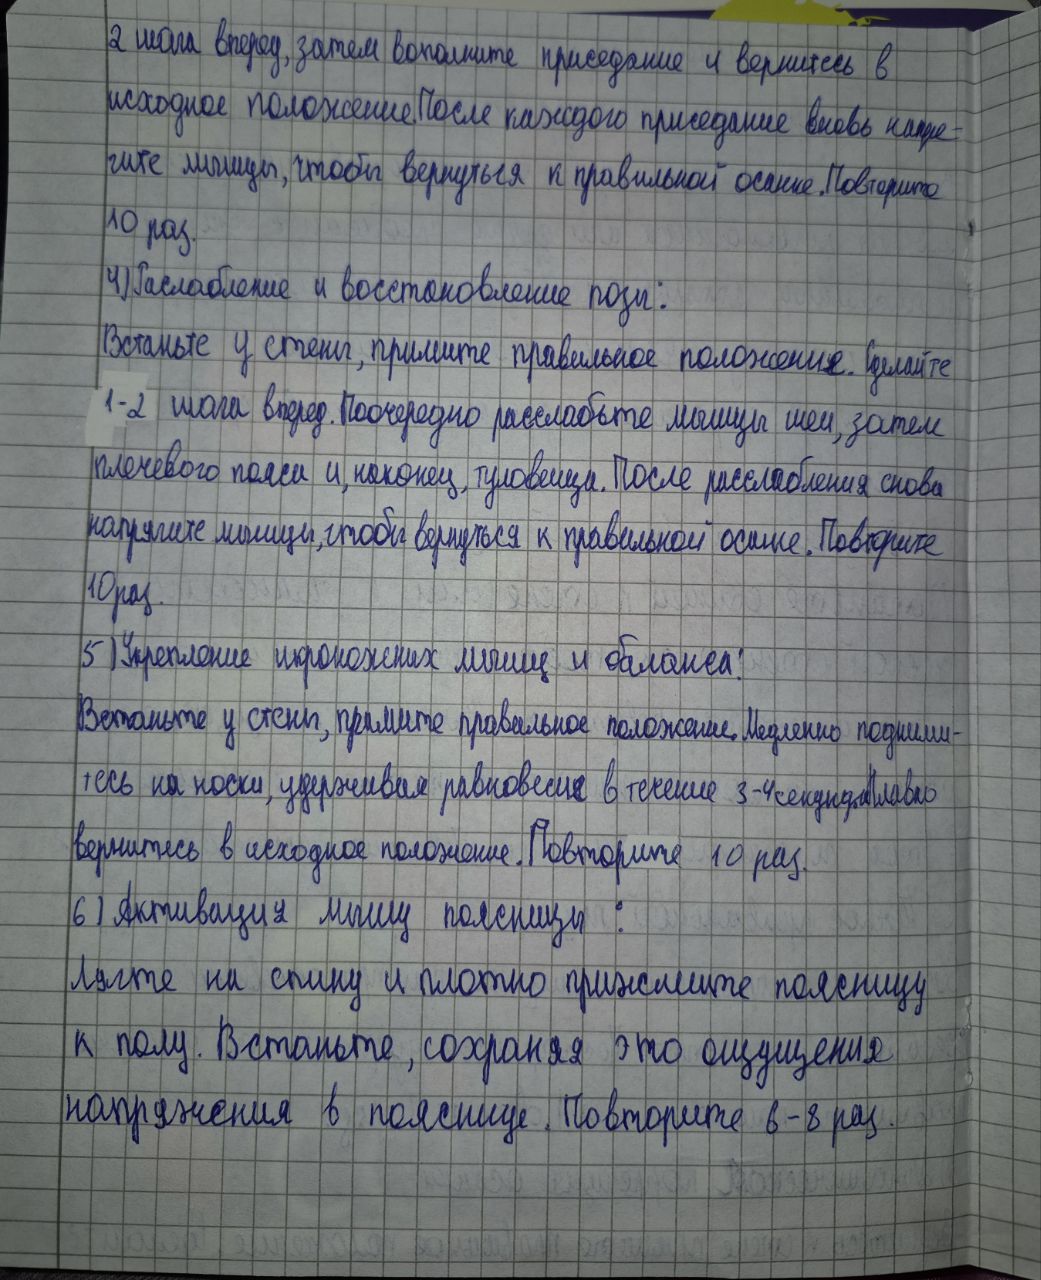 2 шага вперед, затем вополните приседание и вернитесь в
исходное положение.После каждого приседание вновь напря-
гите мышцы, чтобы вернуться к правильной осанке.Повторите
10 раз.
4) Раслабление и восстановление позы:
Встаньте у стены, примите правильное положение. Сделайте
1-2 шага вперед. Поочередно расслабьте мышцы шеи, затем
плечевого пояса и, наконец, туловеища. После расслабления снова
напрягите мышцы, чтобы вернуться к правильной осанке. Повторите
10 раз.
5) Укрепление икроножних мышц и баланса:
Встаньте у стены, примите правильное положение. Медленно подними-
тесь на носки, удерживая равновесие в течение 3-4 секунд. Плавно
вернитесь в исходное положение. Повторите 10 раз.
6) Активация мышц поясницы:
Лягте на спину и плотно прижмите поясницу
к полу. Встаньте, сохраняя это ощущения
напряжения в пояснице. Повторите 6-8 раз.